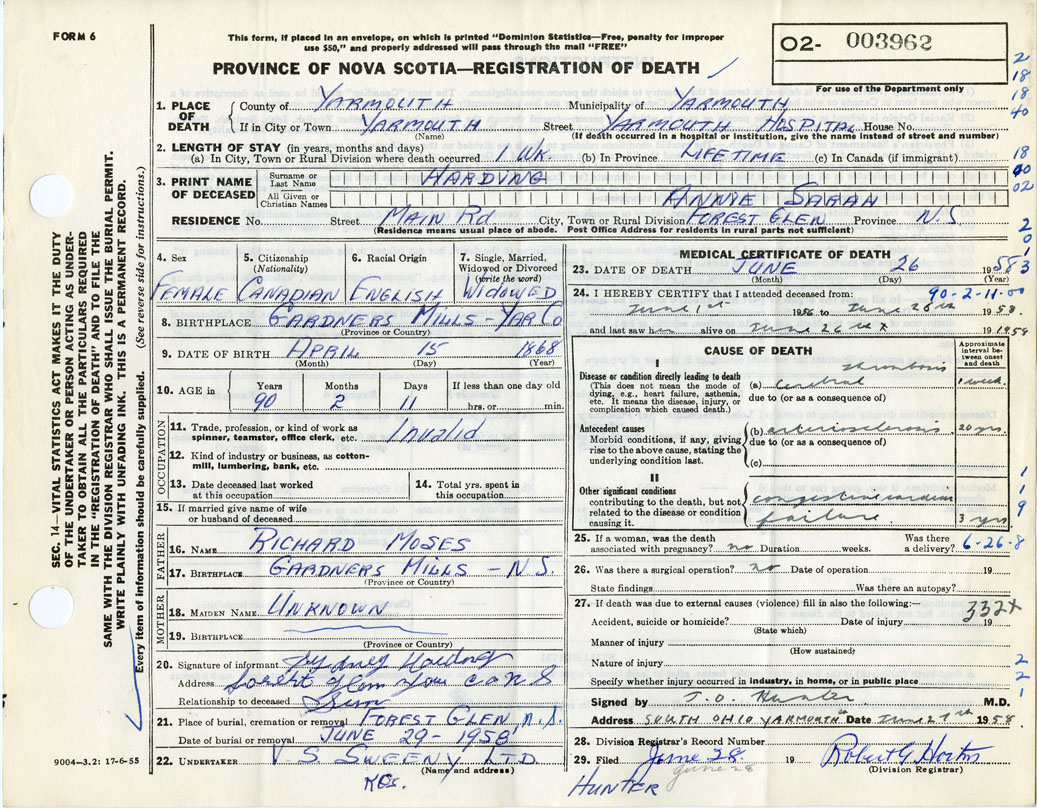 FORM 6
This form, if placed in an envelope, on which is printed "Dominion Statistics—Free, penalty for improper
use $50," and properly addressed will pass through the mail "FREE"
PROVINCE OF NOVA SCOTIA—REGISTRATION OF DEATH
O2- 003962
For use of the Department only
2
18
18
40
1. PLACE OF DEATH
County of YARMOUTH Municipality of YARMOUTH
If in City or Town YARMOUTH Street YARMOUTH HOSPITAL House No.
(Name) (If death occurred in a hospital or institution, give the name instead of street and number)
2. LENGTH OF STAY (in years, months and days)
(a) In City, Town or Rural Division where death occurred 1 WK. (b) In Province LIFETIME (c) In Canada (if immigrant)
18
40
02
3. PRINT NAME OF DECEASED
Surname or Last Name HARDING
All Given or Christian Names ANNIE SARAH
RESIDENCE No. Street MAIN RD City, Town or Rural Division FOREST GLEN Province N.S.
(Residence means usual place of abode. Post Office Address for residents in rural parts not sufficient)
2
0
1
3
SEC. 14—VITAL STATISTICS ACT MAKES IT THE DUTY
OF THE UNDERTAKER OR PERSON ACTING AS UNDER-
TAKER TO OBTAIN ALL THE PARTICULARS REQUIRED
IN THE "REGISTRATION OF DEATH" AND TO FILE THE
SAME WITH THE DIVISION REGISTRAR WHO SHALL ISSUE THE BURIAL PERMIT.
WRITE PLAINLY WITH UNFADING INK. THIS IS A PERMANENT RECORD.
Every item of information should be carefully supplied. (See reverse side for instructions.)
4. Sex
FEMALE
5. Citizenship
(Nationality)
CANADIAN
6. Racial Origin
ENGLISH
7. Single, Married,
Widowed or Divorced
(write the word)
WIDOWED
8. BIRTHPLACE GARDNERS MILLS - YAR CO
(Province or Country)
9. DATE OF BIRTH APRIL 15 1868
(Month) (Day) (Year)
10. AGE in
Years Months Days If less than one day old
90 2 11 hrs. or min.
OCCUPATION
11. Trade, profession, or kind of work as
spinner, teamster, office clerk, etc. Invalid
12. Kind of industry or business, as cotton-
mill, lumbering, bank, etc.
13. Date deceased last worked
at this occupation
14. Total yrs. spent in
this occupation
15. If married give name of wife
or husband of deceased
FATHER
16. NAME RICHARD MOSES
17. BIRTHPLACE GARDNERS MILLS - N.S.
(Province or Country)
MOTHER
18. MAIDEN NAME UNKNOWN
19. BIRTHPLACE
(Province or Country)
20. Signature of informant Sydney Harding
Address
Relationship to deceased Son
21. Place of burial, cremation or removal FOREST GLEN N.S.
Date of burial or removal JUNE 29 - 1958
22. UNDERTAKER V. S. SWEENY LTD.
(Name and address)
9004—3.2: 17-6-55
MEDICAL CERTIFICATE OF DEATH
23. DATE OF DEATH JUNE 26 1958
(Month) (Day) (Year)
24. I HEREBY CERTIFY that I attended deceased from: 90-2-11-00
June 1st 1956 to June 26th 1958.
and last saw her alive on June 26th 1958
CAUSE OF DEATH
Approximate interval between onset and death
I
Disease or condition directly leading to death
(This does not mean the mode of
dying, e.g., heart failure, asthenia,
etc. It means the disease, injury, or
complication which caused death.)
(a) Cerebral thrombosis 1 week.
due to (or as a consequence of)
Antecedent causes
Morbid conditions, if any, giving
rise to the above cause, stating the
underlying condition last.
(b) arteriosclerosis 20 yrs.
due to (or as a consequence of)
(c)
II
Other significant conditions
contributing to the death, but not
related to the disease or condition
causing it.
congestive cardiac
failure. 3 yrs
1
1
9
25. If a woman, was the death
associated with pregnancy? no Duration weeks. Was there
a delivery? 6-26-8
26. Was there a surgical operation? no Date of operation 19
State findings Was there an autopsy?
27. If death was due to external causes (violence) fill in also the following:— 332X
Accident, suicide or homicide? Date of injury 19
(State which)
Manner of injury
(How sustained)
Nature of injury
Specify whether injury occurred in industry, in home, or in public place
2
2
1
Signed by T.O. Hunter M.D.
Address SOUTH OHIO YARMOUTH Co Date June 27th 1958.
28. Division Registrar's Record Number
29. Filed June 28 19 Robert G Horton
June 28 (Division Registrar)
HUNTER